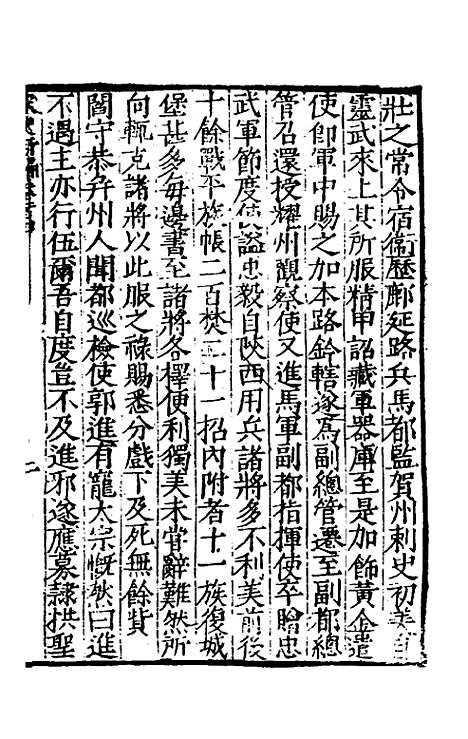 壯之常令宿衞歷鄜延路兵馬都監賀州刺史初美自
靈武來上其所服精甲詔藏軍器庫至是加飾黃金遣
使卽軍中賜之加本路鈐轄遂爲副總管遷至副都總
管召還授耀州觀察使又進馬軍副都指揮使卒贈忠
武軍節度使諡忠毅自陝西用兵諸將多不利美前後
十餘戰平族帳二百焚二十一招內附者十一族復城
堡甚多每邊書至諸將各擇便利獨美未嘗辭難然所
向輒克諸將以此服之祿賜悉分戲下及死無餘貲
閻守恭幷州人聞都巡檢使郭進有寵太宗慨然曰進
不遇王亦行伍爾吾自度豈不及進邪遂應募隸拱聖